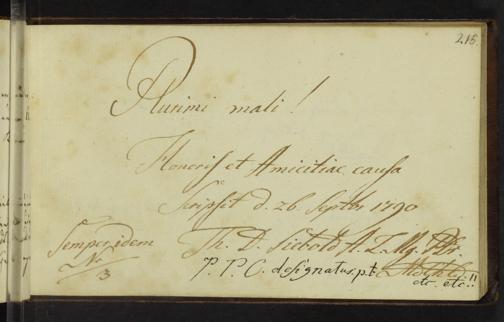 215.
Plurimi mali!
Honoris et Amicitiae causa
Scripsit d. 26 Septbr 1790
Semper idem Th. D. Siebold A. L. Mg.
No 3
P. P. C. designatus. p. t.
etc. etc. !!